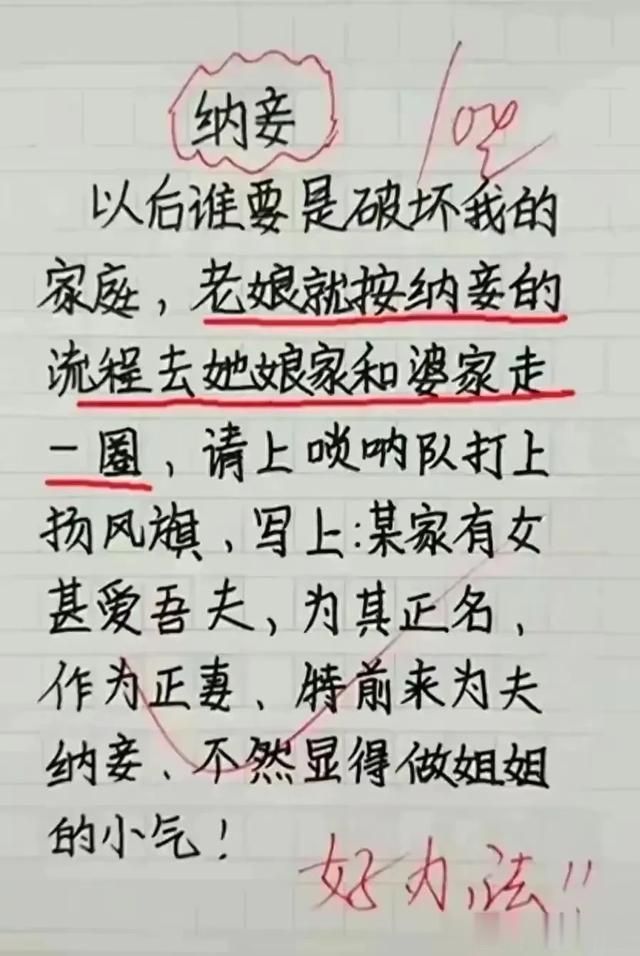 纳妾
100
以后谁要是破坏我的
家庭，老娘就按纳妾的
流程去她娘家和婆家走
一圈，请上唢呐队打上
扬风旗、写上:某家有女
甚爱吾夫，为其正名，
作为正妻、特前来为夫
纳妾、不然显得做姐姐
的小气！
好办法!!